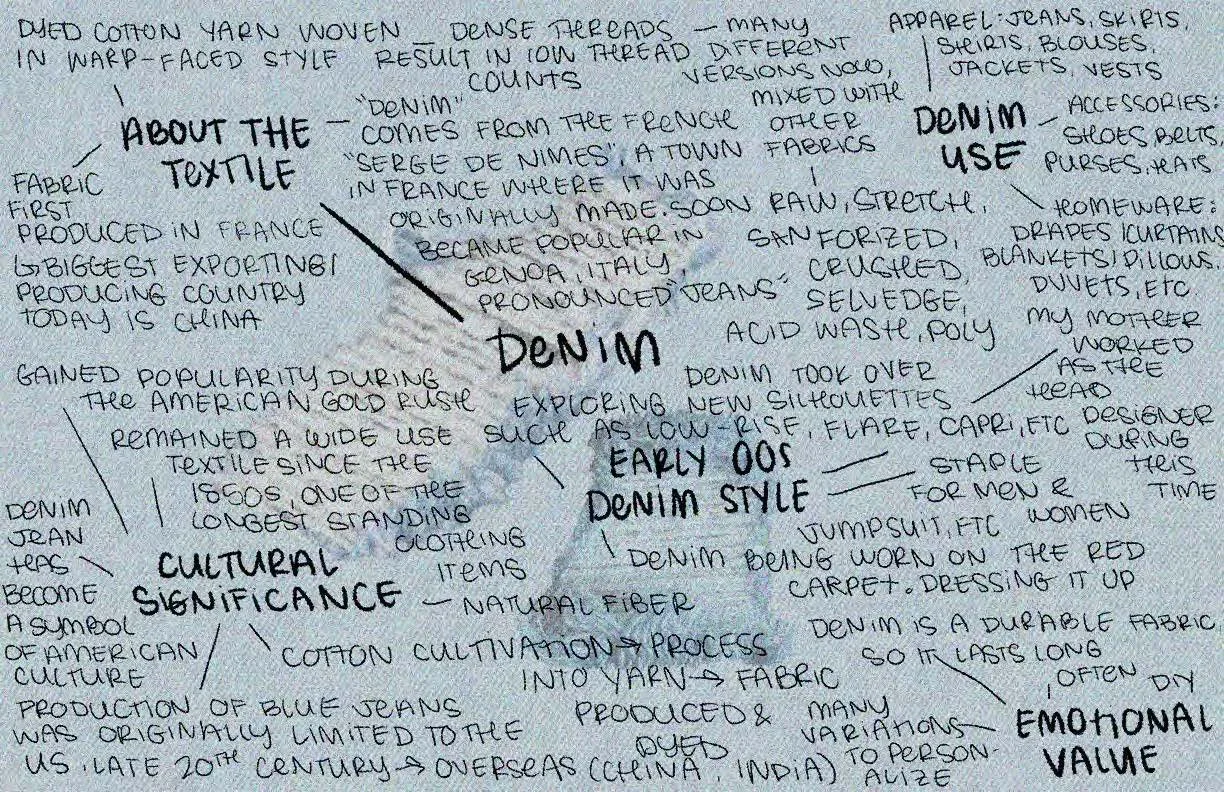 DYED COTTON YARN WOVEN
IN WARP-FACED STYLE
— DENSE THREADS
RESULT IN LOW THREAD
COUNTS
— MANY
DIFFERENT
VERSIONS NOW,
MIXED WITH
OTHER
FABRICS
RAW, STRETCH,
SANFORIZED,
CRUSHED,
SELVEDGE,
ACID WASH, POLY
ABOUT THE
TEXTILE
— "DENIM"
COMES FROM THE FRENCH
"SERGE DE NIMES", A TOWN
IN FRANCE WHERE IT WAS
ORIGINALLY MADE. SOON
BECAME POPULAR IN
GENOA, ITALY,
PRONOUNCED "JEANS"
FABRIC
FIRST
PRODUCED IN FRANCE
↳ BIGGEST EXPORTING/
PRODUCING COUNTRY
TODAY IS CHINA
APPAREL: JEANS, SKIRTS,
SHIRTS, BLOUSES,
JACKETS, VESTS
DENIM
USE
ACCESSORIES:
SHOES, BELTS,
PURSES, HATS
HOMEWARE:
DRAPES/CURTAINS
BLANKETS/PILLOWS,
DUVETS, ETC
DENIM
GAINED POPULARITY DURING
THE AMERICAN GOLD RUSH
REMAINED A WIDE USE
TEXTILE SINCE THE
1850S, ONE OF THE
LONGEST STANDING
CLOTHING
ITEMS
DENIM
JEAN
HAS
BECOME
A SYMBOL
OF AMERICAN
CULTURE
CULTURAL
SIGNIFICANCE
— NATURAL FIBER
COTTON CULTIVATION → PROCESS
INTO YARN → FABRIC
PRODUCED &
DYED
PRODUCTION OF BLUE JEANS
WAS ORIGINALLY LIMITED TO THE
US, LATE 20TH CENTURY → OVERSEAS (CHINA, INDIA)
DENIM TOOK OVER
EXPLORING NEW SILHOUETTES
SUCH AS LOW-RISE, FLARE, CAPRI, ETC
EARLY 00S
DENIM STYLE
MY MOTHER
WORKED
AS THE
HEAD
DESIGNER
DURING
THIS
TIME
STAPLE
FOR MEN &
WOMEN
JUMPSUIT, ETC
DENIM BEING WORN ON THE RED
CARPET. DRESSING IT UP
DENIM IS A DURABLE FABRIC,
SO IT LASTS LONG
OFTEN DIY
EMOTIONAL
VALUE
MANY
VARIATIONS
TO PERSON-
ALIZE